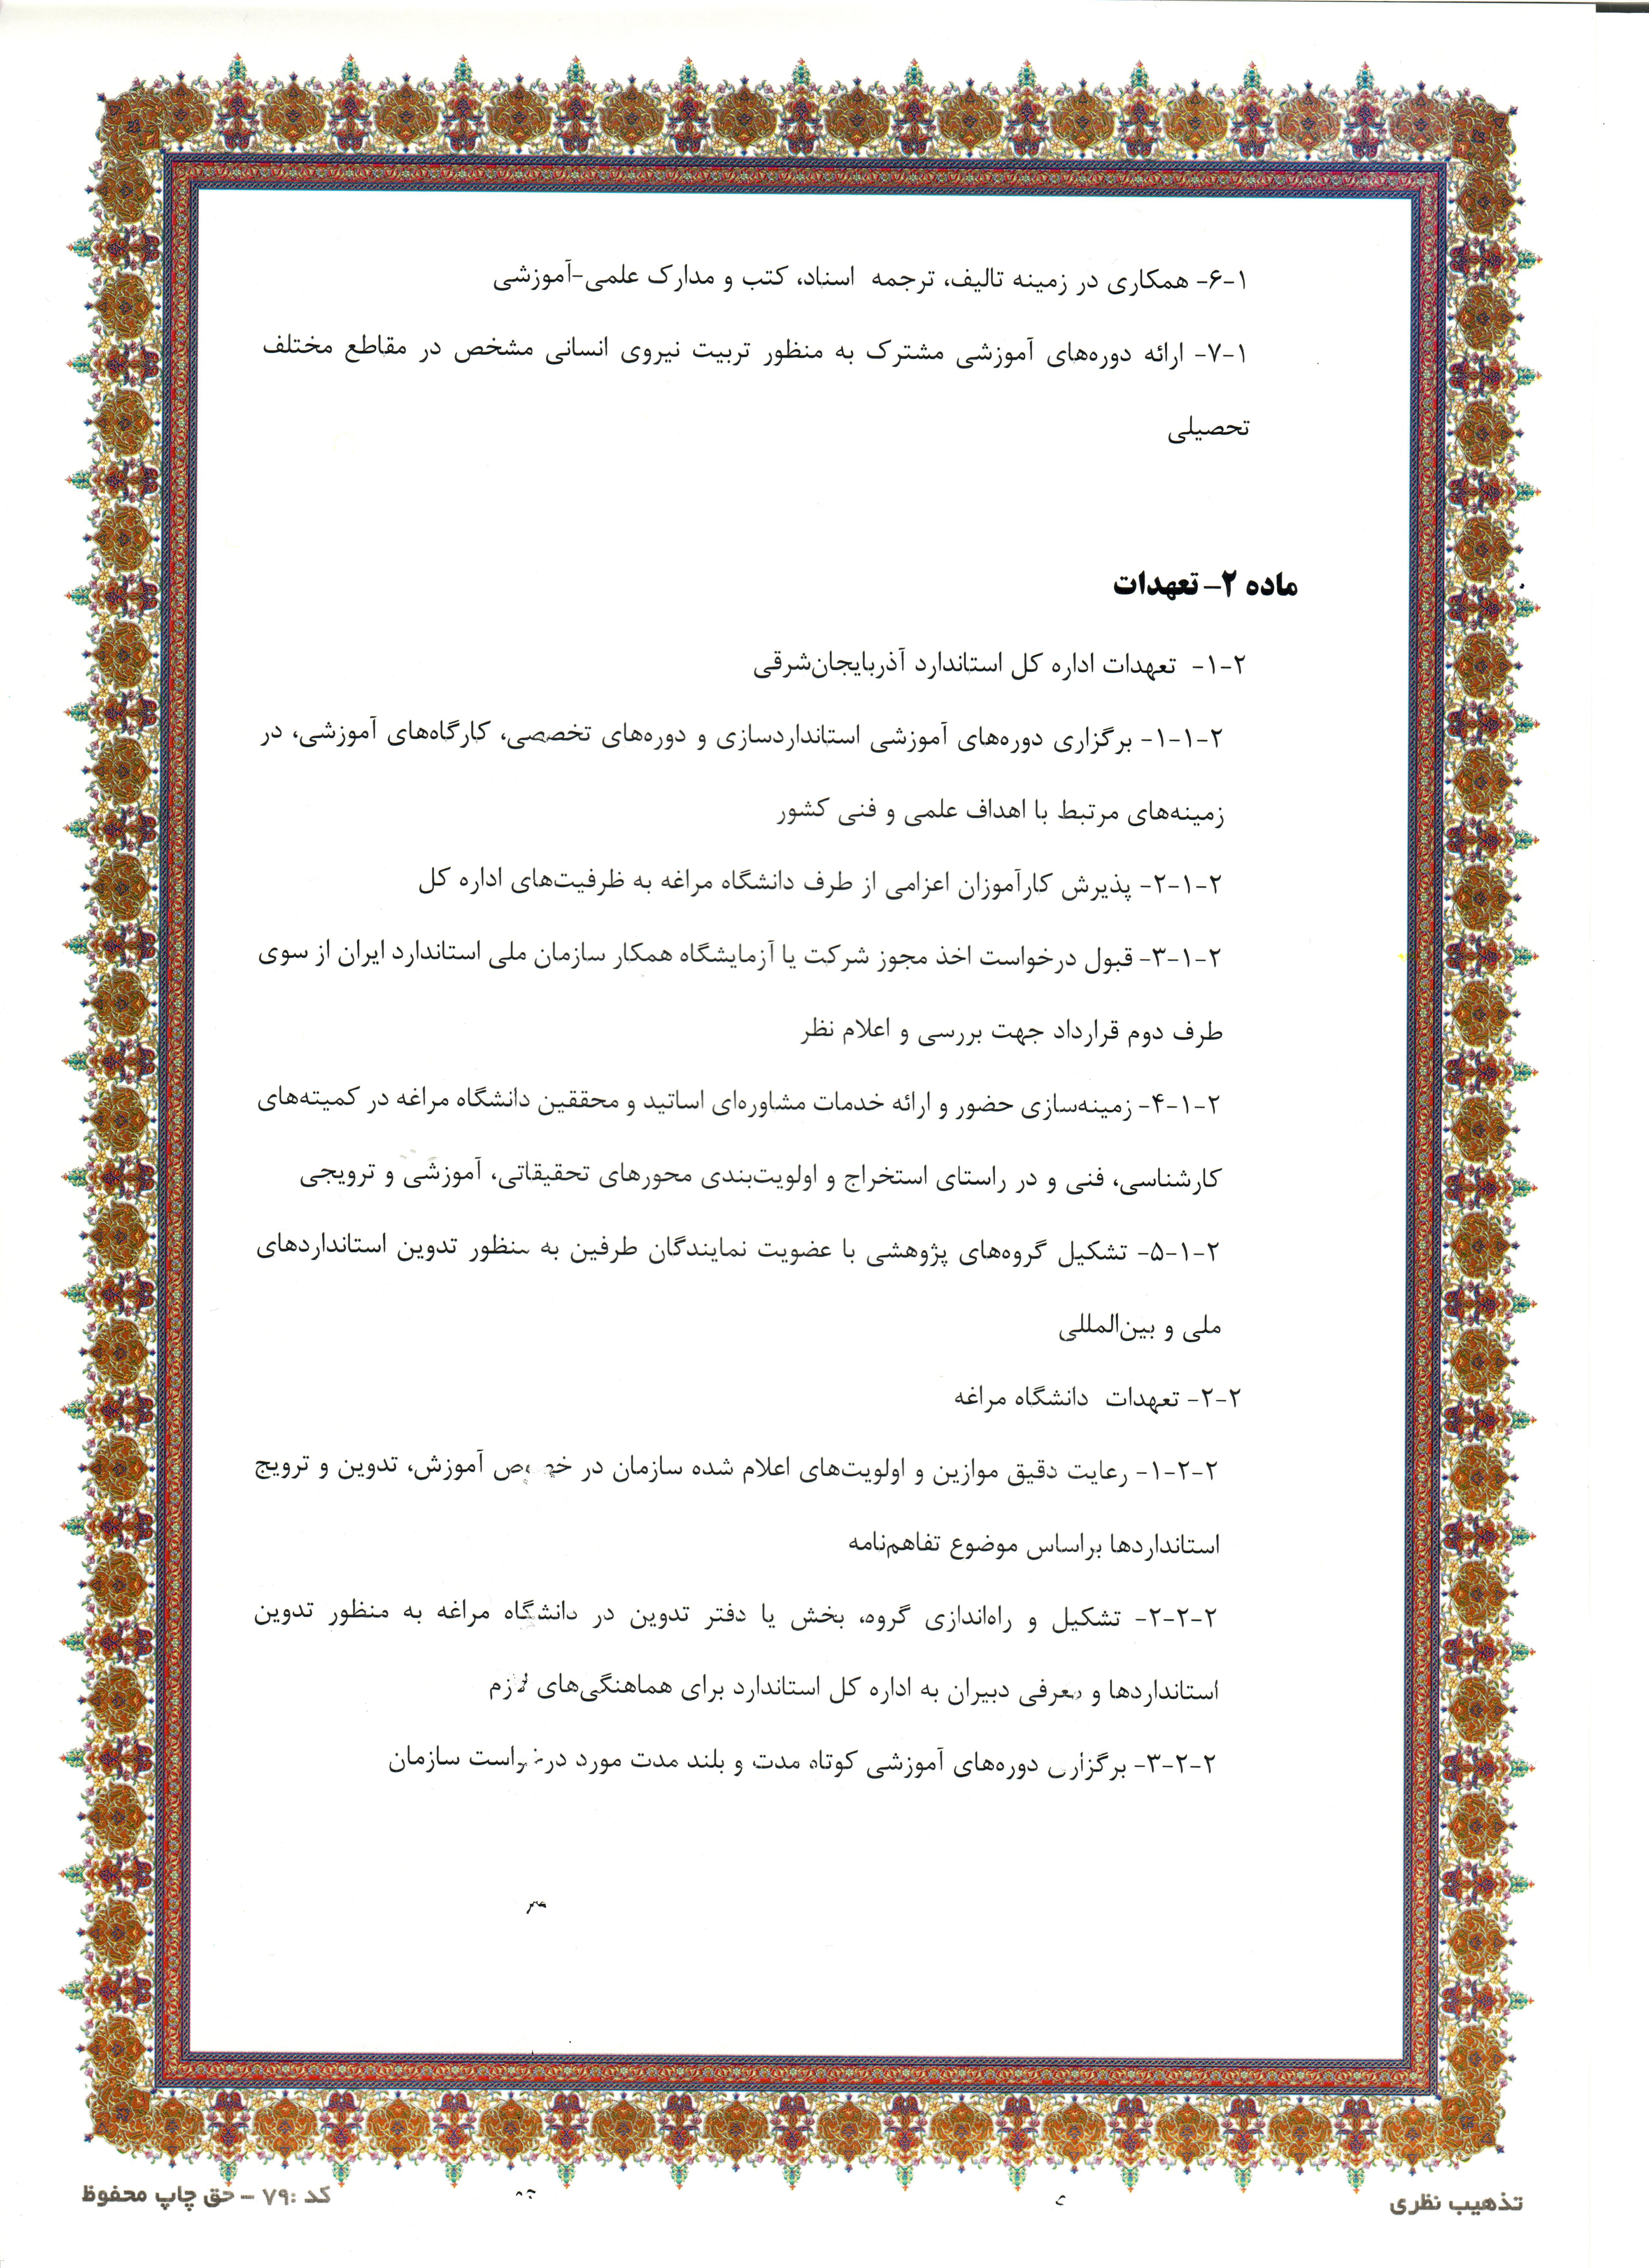 ۶-۱- همکاری در زمینه تالیف، ترجمه اسناد، کتب و مدارک علمی-آموزشی
۷-۱- ارائه دوره‌های آموزشی مشترک به منظور تربیت نیروی انسانی مشخص در مقاطع مختلف
تحصیلی
ماده ۲- تعهدات
۱-۲- تعهدات اداره کل استاندارد آذربایجان‌شرقی
۱-۱-۲- برگزاری دوره‌های آموزشی استانداردسازی و دوره‌های تخصصی، کارگاه‌های آموزشی، در
زمینه‌های مرتبط با اهداف علمی و فنی کشور
۲-۱-۲- پذیرش کارآموزان اعزامی از طرف دانشگاه مراغه به ظرفیت‌های اداره کل
۳-۱-۲- قبول درخواست اخذ مجوز شرکت یا آزمایشگاه همکار سازمان ملی استاندارد ایران از سوی
طرف دوم قرارداد جهت بررسی و اعلام نظر
۴-۱-۲- زمینه‌سازی حضور و ارائه خدمات مشاوره‌ای اساتید و محققین دانشگاه مراغه در کمیته‌های
کارشناسی، فنی و در راستای استخراج و اولویت‌بندی محورهای تحقیقاتی، آموزشی و ترویجی
۵-۱-۲- تشکیل گروه‌های پژوهشی با عضویت نمایندگان طرفین به منظور تدوین استانداردهای
ملی و بین‌المللی
۲-۲- تعهدات دانشگاه مراغه
۱-۲-۲- رعایت دقیق موازین و اولویت‌های اعلام شده سازمان در خصوص آموزش، تدوین و ترویج
استانداردها براساس موضوع تفاهم‌نامه
۲-۲-۲- تشکیل و راه‌اندازی گروه، بخش یا دفتر تدوین در دانشگاه مراغه به منظور تدوین
استانداردها و معرفی دبیران به اداره کل استاندارد برای هماهنگی‌های لازم
۳-۲-۲- برگزاری دوره‌های آموزشی کوتاه مدت و بلند مدت مورد درخواست سازمان
تذهیب نظری
کد :۷۹ - حق چاپ محفوظ